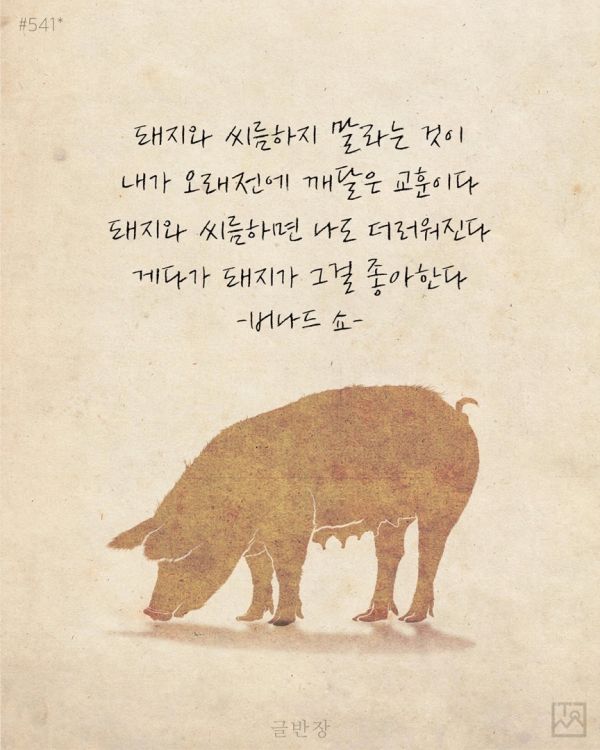 #541*
돼지와 씨름하지 말라는 것이
내가 오래전에 깨달은 교훈이다
돼지와 씨름하면 나도 더러워진다
게다가 돼지가 그걸 좋아한다
-버나드 쇼-
글반장